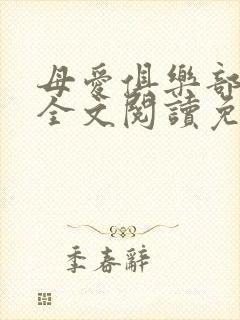 母愛俱樂部
全文閱讀免
季春辭